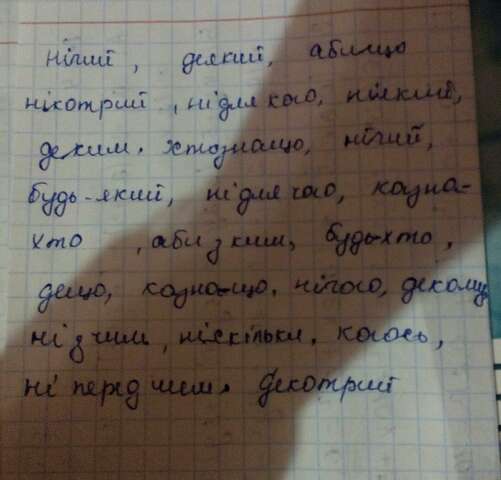 нічий, деякий, аби що
нікотрий, ні для кого, ніякий,
деким, хтознащо, нічий,
будь-який, ні для чого, казна-
хто, аби з ким, будь-хто,
дещо, казна-що, нічого, декому
ні з чим, ніскільки, когось,
ні перед чим, декотрий